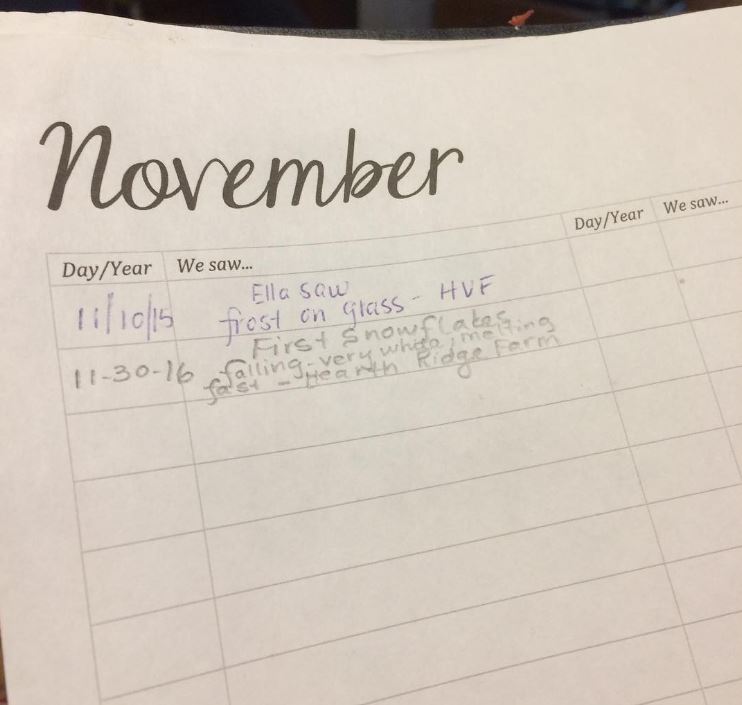 November
Day/Year We saw... Day/Year We saw...
11/10/15 Ella saw
frost on glass - HVF
First snowflakes
11-30-16 falling - very white, melting
fast - Hearth Ridge Farm